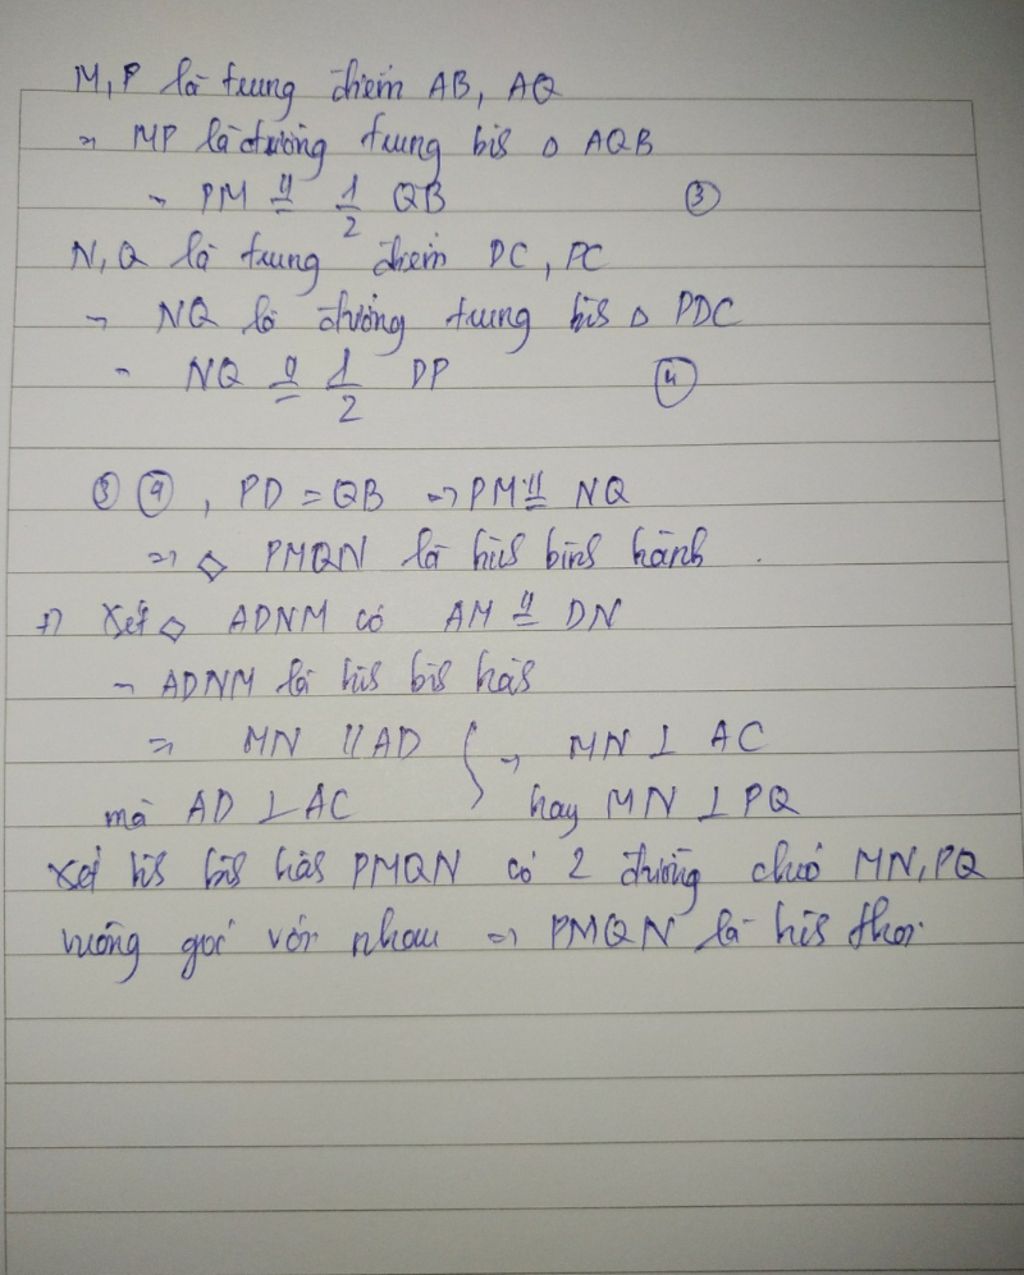 M, P là trung điểm AB, AQ
⇒ MP là đường trung bìS △ AQB
⇒ PM ∥= 1/2 QB ③
N, Q là trung điểm DC, PC
⇒ NQ là đường trung bìS △ PDC
⇒ NQ ∥= 1/2 DP ④
③ ④, PD = QB ⇒ PM ∥= NQ
⇒ ◇ PMQN là hìS bình hành.
+) Xét ◇ ADNM có AM ∥= DN
⇒ ADNM là hìS bìS hàS
⇒ MN // AD } ⇒ MN ⊥ AC
mà AD ⊥ AC hay MN ⊥ PQ
Xét hìS bìS hàS PMQN có 2 đường chéo MN, PQ
vuông góc với nhau ⇒ PMQN là hìS thoi.